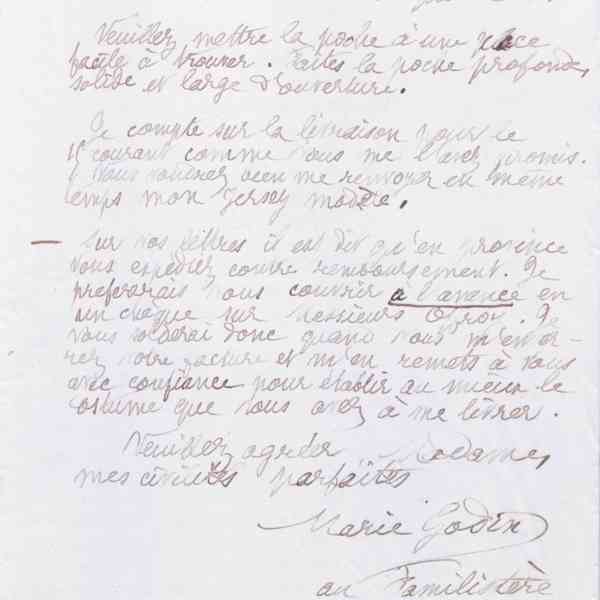 Veuillez mettre la poche à une place
facile à trouver. Faites la poche profonde,
solide et large d'ouverture.
Je compte sur la livraison pour le
15 courant comme vous me l'avez promis.
Vous voudrez bien me renvoyer en même
temps mon Jersey modèle.
— Sur vos lettres il est dit qu'en province
vous expédiez contre remboursement. Je
préférerais vous couvrir à l'avance en
un chèque sur Messieurs Offroy. Je
vous solderai donc quand vous m'enver-
rez votre facture et m'en remets à vous
avec confiance pour établir au mieux le
costume que vous avez à me livrer.
Veuillez agréer Madame,
mes civilités parfaites
Marie Godin
au Familistère